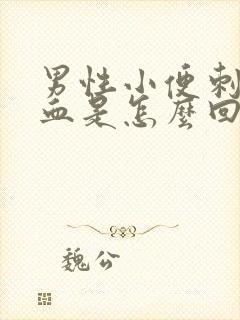 男性小便刺
血是怎麼回
魏公